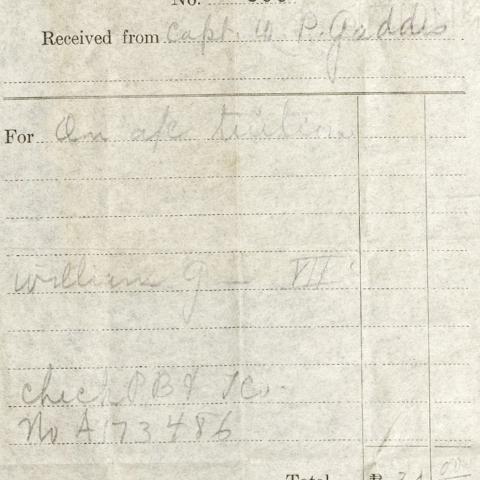 No.
Received from Capt. W P. Gaddis
For On a/c tuition
William G — VII
check P B & T Co.
No A 173486
Total ₱